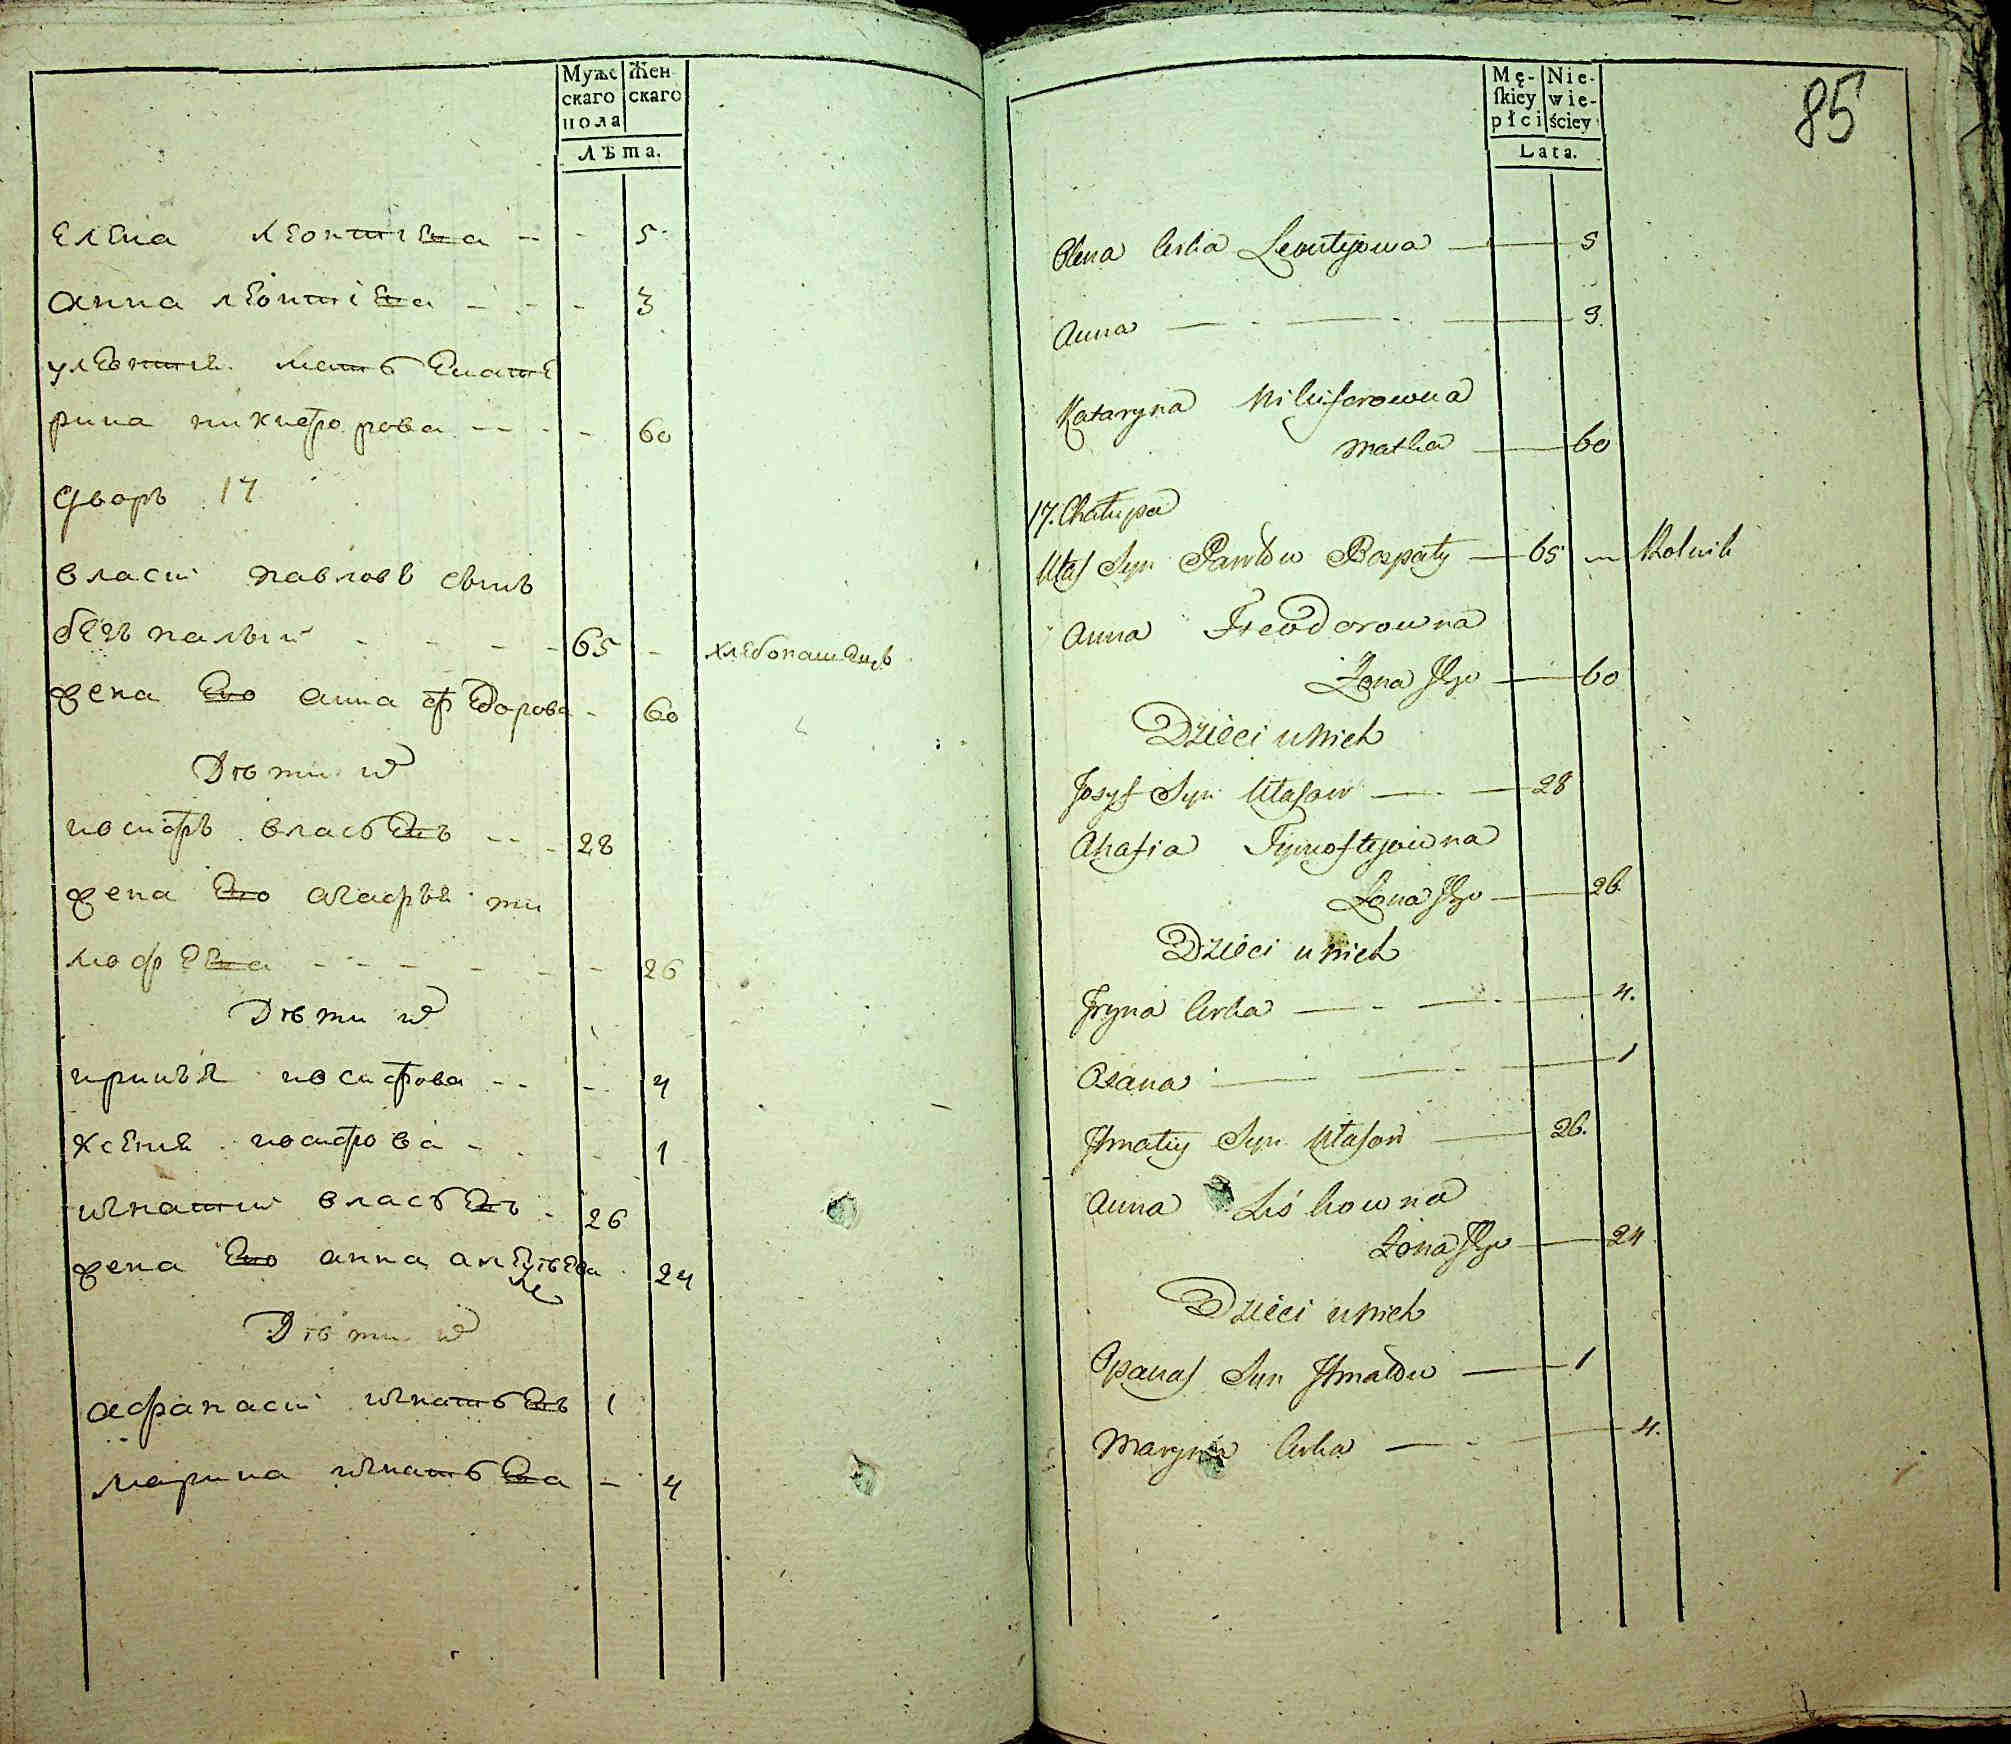 Мужс Жен-
скаго скаго
пола
Лѣта.
елена леонтиева - - 5
анна леонтиева - - - 3
улеонтия мать екате
рина никифорова - - - - 60
дворъ 17
власи павловъ сынъ
безпалыи - - - - 65 - хлебопашецъ
жена ево анна федорова - 60
Дѣти их
иосифъ власьевъ - - - 28
жена ево агафья ти
мофеева - - - - - - 26
Дѣти их
ириня иосифова - - - 4
ксения иосифова - - - 1
игнатии власьевъ - 26
жена ево анна алексѣева 24
Дѣти их
афанаси игнатьевъ 1
марина игнатьева - 4
85
Mę- Nie-
ſkiey wie-
płci ściey
Lata.
Olena Corka Leontyjowa 5
Anna 3.
Kataryna Nikiforowna
Matka 60
17. Chałupa
Ułas Syn Pawłow Bezpały 65 Rolnik
Anna Fteodorowna
Żona Jego 60
Dzieci u Nich
Josyf Syn Ułasow 28
Ahafia Tymoftejowna
Żona Jego 26.
Dzieci u Nich
Jryna Corka 4.
Oxana 1
Jhnatiy Syn Ułasow 26.
Anna
Żona Jego 24
Dzieci u Nich
Opanas Syn Jhnatow 1
Maryna Corka 4.